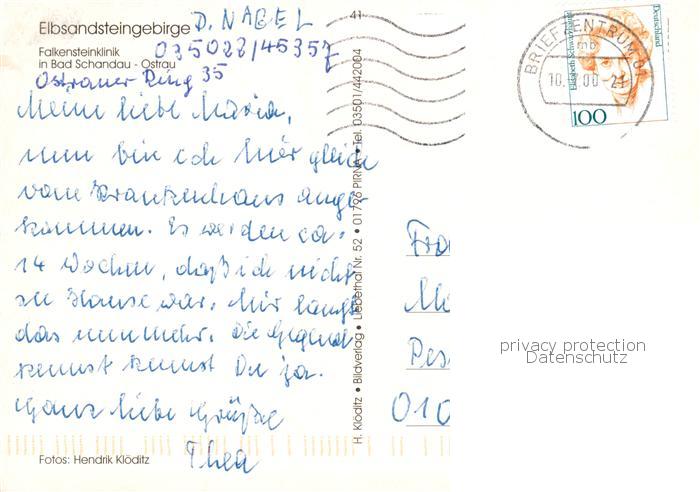 Elbsandsteingebirge D. NAGEL
Falkensteinklinik 035028/45357
in Bad Schandau - Ostrau
Ostrauer Ring 35
Meine liebe Maria,
nun bin ich hier gleich
vom Krankenhaus ange-
kommen. Es werden ca.
14 Wochen, daß ich nicht
zu Hause war. Mir langt
das nunmehr. Die Gegend
kennst kennst Du ja.
Ganz liebe Grüße
Thea
Fotos: Hendrik Klöditz
H. Klöditz • Bildverlag • Liebethal Nr. 52 • 01796 PIRNA • Tel. 03501/442004
41
BRIEFZENTRUM 01
mb
00-21
Deutschland
100
Fra
Pes
010
privacy protection
Datenschutz